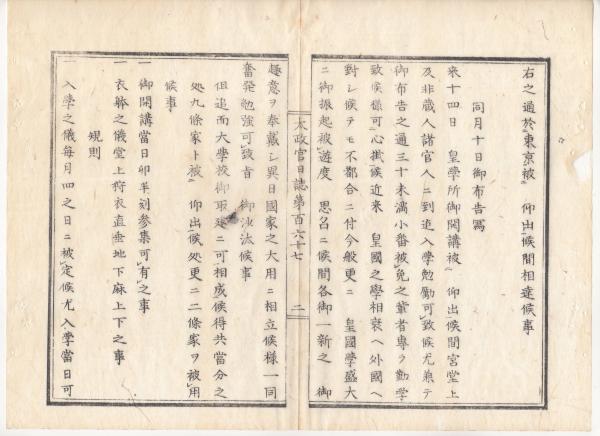 右之通於東京被　仰出候間相達候事
同月十日御布告寫
来十四日　皇學所御開講被　仰出候間宮堂上
及非蔵人諸官人ニ到迄入学勉勵可致候尤兼テ
御布告之通三十未満小番被免之輩者専ラ勤学
致候様可心掛候近来　皇國之學相衰ヘ外國ヘ
對レ候テモ不都合ニ付今般更ニ　皇國學盛大
ニ御振起被遊度　思召ニ候間各御一新之　御
太政官日誌第百六十七　二
趣意ヲ奉戴シ異日國家之大用ニ相立候様一同
奮発勉強可致旨　御沙汰候事
但追而大學校御取建ニ可相成候得共當分之
処九條家ト被　仰出候処更ニ二條家ヲ被用
候事
規則
一御開講當日卯半刻参集可有之事
一衣躰之儀堂上狩衣直垂地下麻上下之事
一入學之儀毎月四之日ニ被定候尤入學當日可